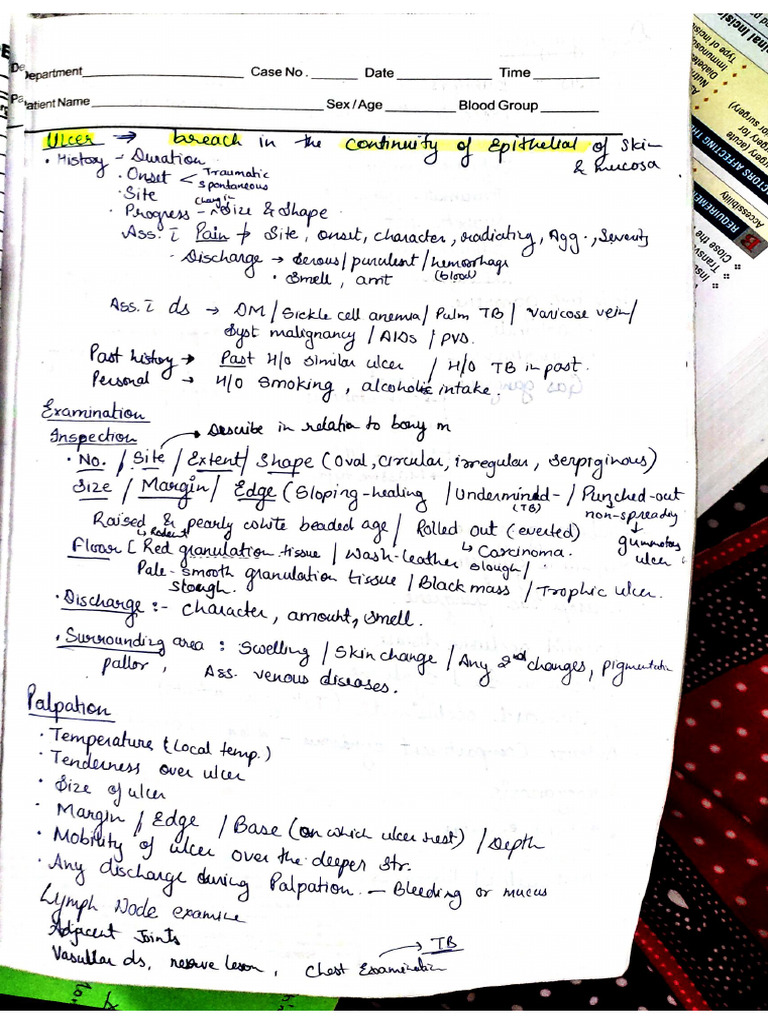 Department Case No. Date Time
Patient Name Sex / Age Blood Group
Ulcer → breach in the continuity of Epithelial of skin & mucosa.
• History - Duration
• Onset < Traumatic
spontaneous
• Site
• Progress - in size & Shape
Ass. c̄ Pain → Site, Onset, character, radiating, Agg., Severity
• Discharge → serous / purulent / hemorrhage (blood)
• Smell, amt
Ass. c̄ ds → DM / Sickle cell anemia / Pulm TB / Varicose vein /
Syst malignancy / AIDs / PVD.
Past history → Past H/O similar ulcer / H/O TB in past.
Personal → H/O smoking, alcoholic intake.
Examination
Inspection → Describe in relation to bony m
• No. / Site / Extent / Shape (Oval, Circular, irregular, serpiginous)
Size / Margin / Edge (Sloping-healing / Undermined- (TB) / Punched-out
non-spreading
Raised & pearly white beaded age / Rolled out (everted)
↳ Rodent ↳ Carcinoma. gummatous ulcer
Floor [ Red granulation tissue / Wash-leather slough /
Pale-smooth granulation tissue / Black mass / Trophic ulcer.
slough.
• Discharge :- character, amount, smell.
• Surrounding area : Swelling / Skin change / Any 2nd changes, pigmentation
pallor, Ass. venous diseases.
Palpation
• Temperature (Local temp.)
• Tenderness over ulcer
• Size of ulcer
• Margin / Edge / Base (on which ulcer rest) / Depth
• Mobility of ulcer over the deeper str.
• Any discharge during Palpation. - Bleeding or mucus
Lymph Node examine
Adjacent Joints
Vasullar ds, nerve leson, Chest Examination → TB
REQUIREMEN
Accessibility
Close the
Transv
CTORS AFFECTING TH
Type of incisi
Immunosu
Diabete